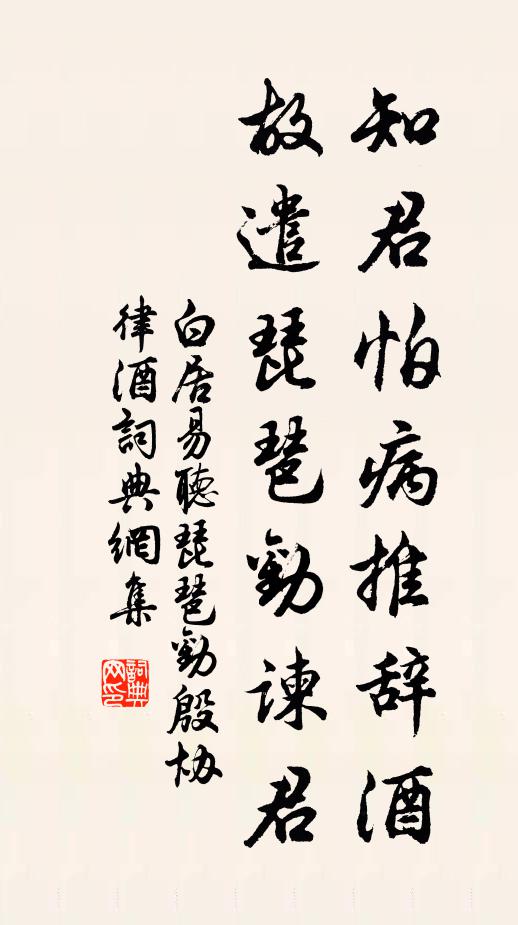 知君怕病推辞酒
故遣琵琶勸谏君
白居易聽琵琶勸殷协
律酒詞典網集
詞典
网